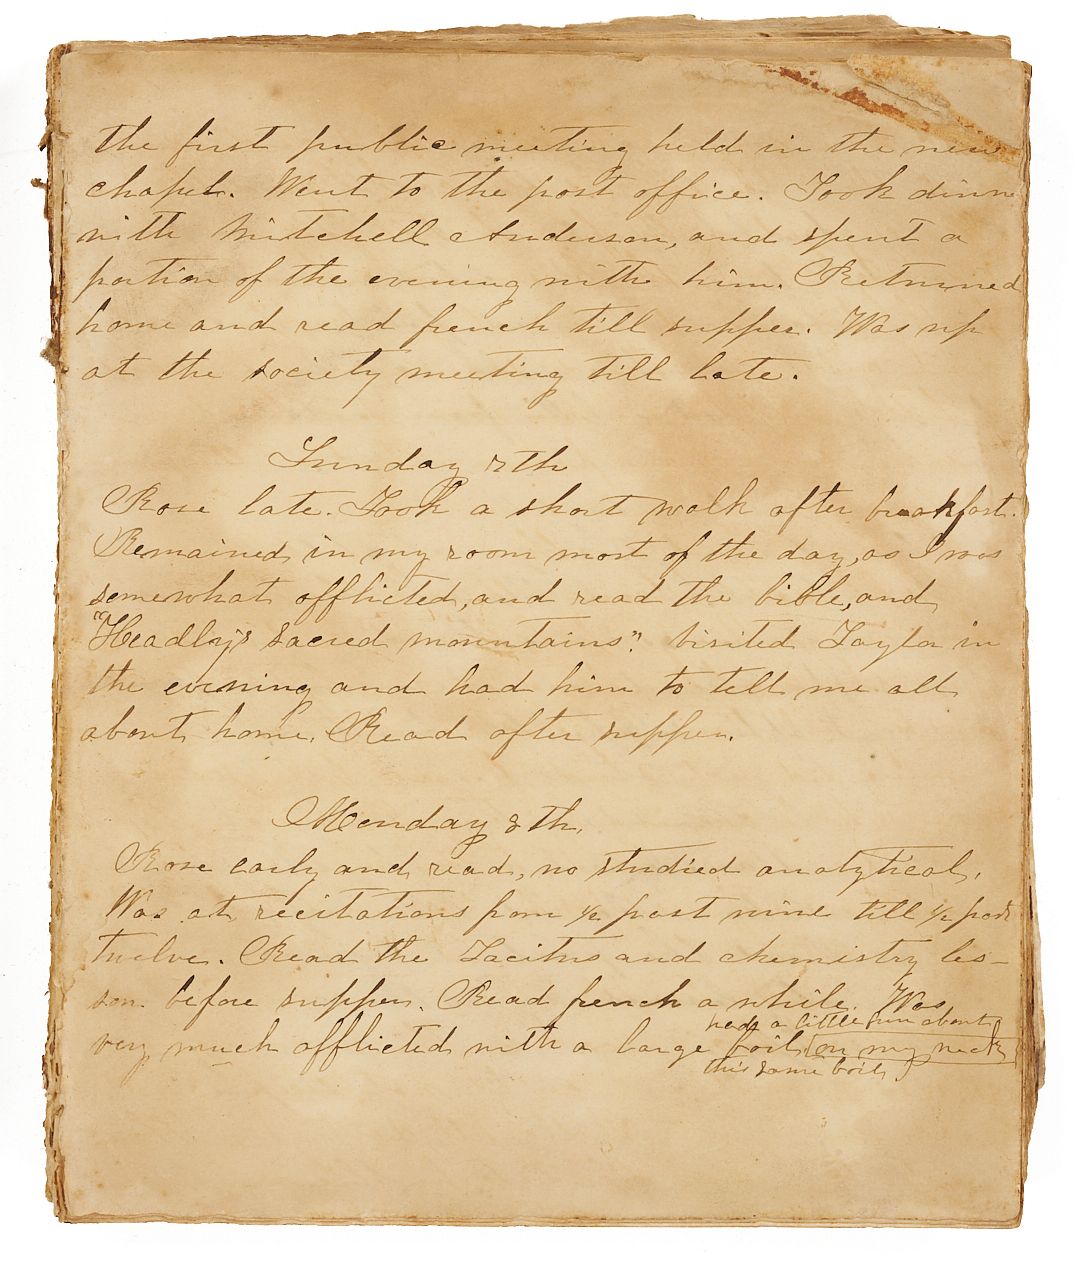 the first public meeting held in the new
chapel. Went to the post office. Took dinne
with Mitchell Anderson, and spent a
portion of the evening with him. Returned
home and read french till supper. Was up
at the society meeting till late.
Sunday 7th
Rose late. Took a short walk after breakfast.
Remained in my room most of the day, as I was
somewhat afflicted, and read the bible, and
"Headley's sacred mountains". Visited Taylor in
the evening and had him to tell me all
about home. Read after supper.
Monday 8th.
Rose early and read, no studied analytical.
Was at recitations from ½ past nine till ½ past
twelve. Read the Tacitus and chemistry les-
son before supper. Read french a while. Was
very much afflicted with a large boil (on my neck)
had a little fun about
this same boil.)